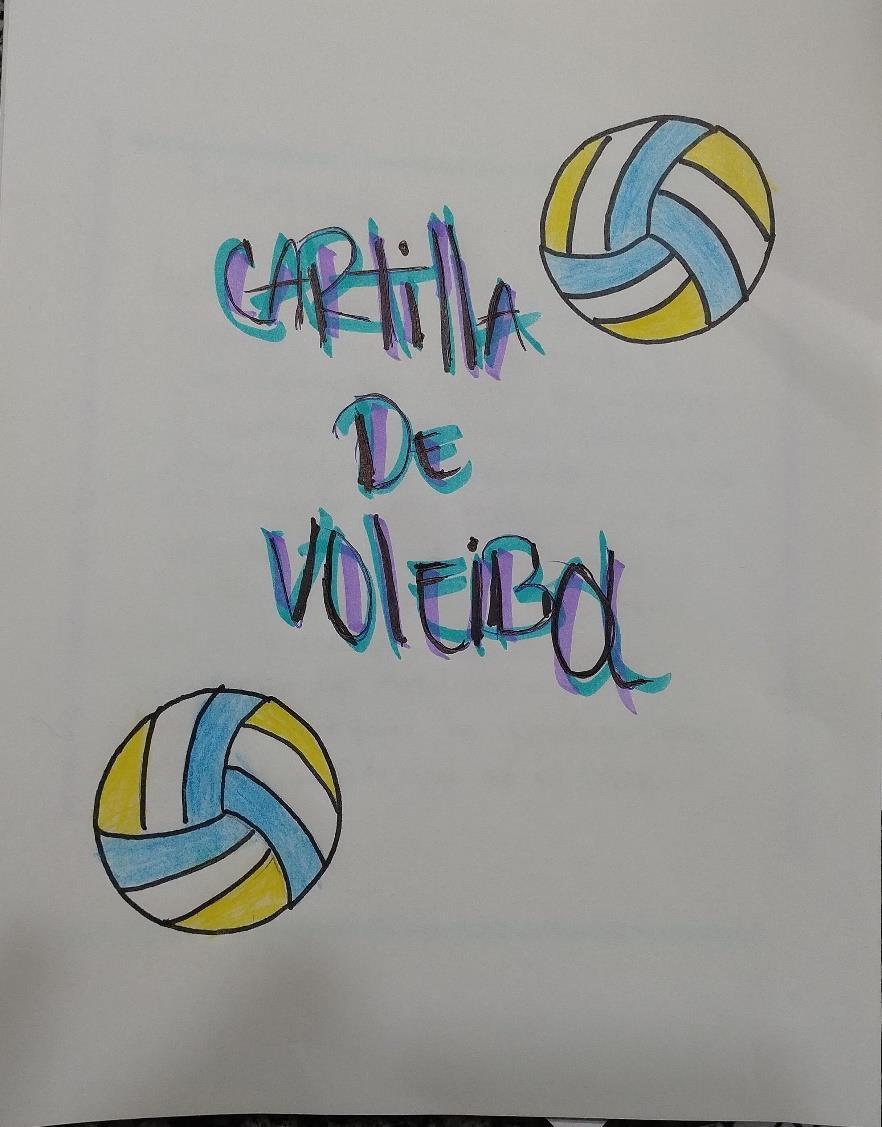 CARtillA
DE
VOlEiBOL